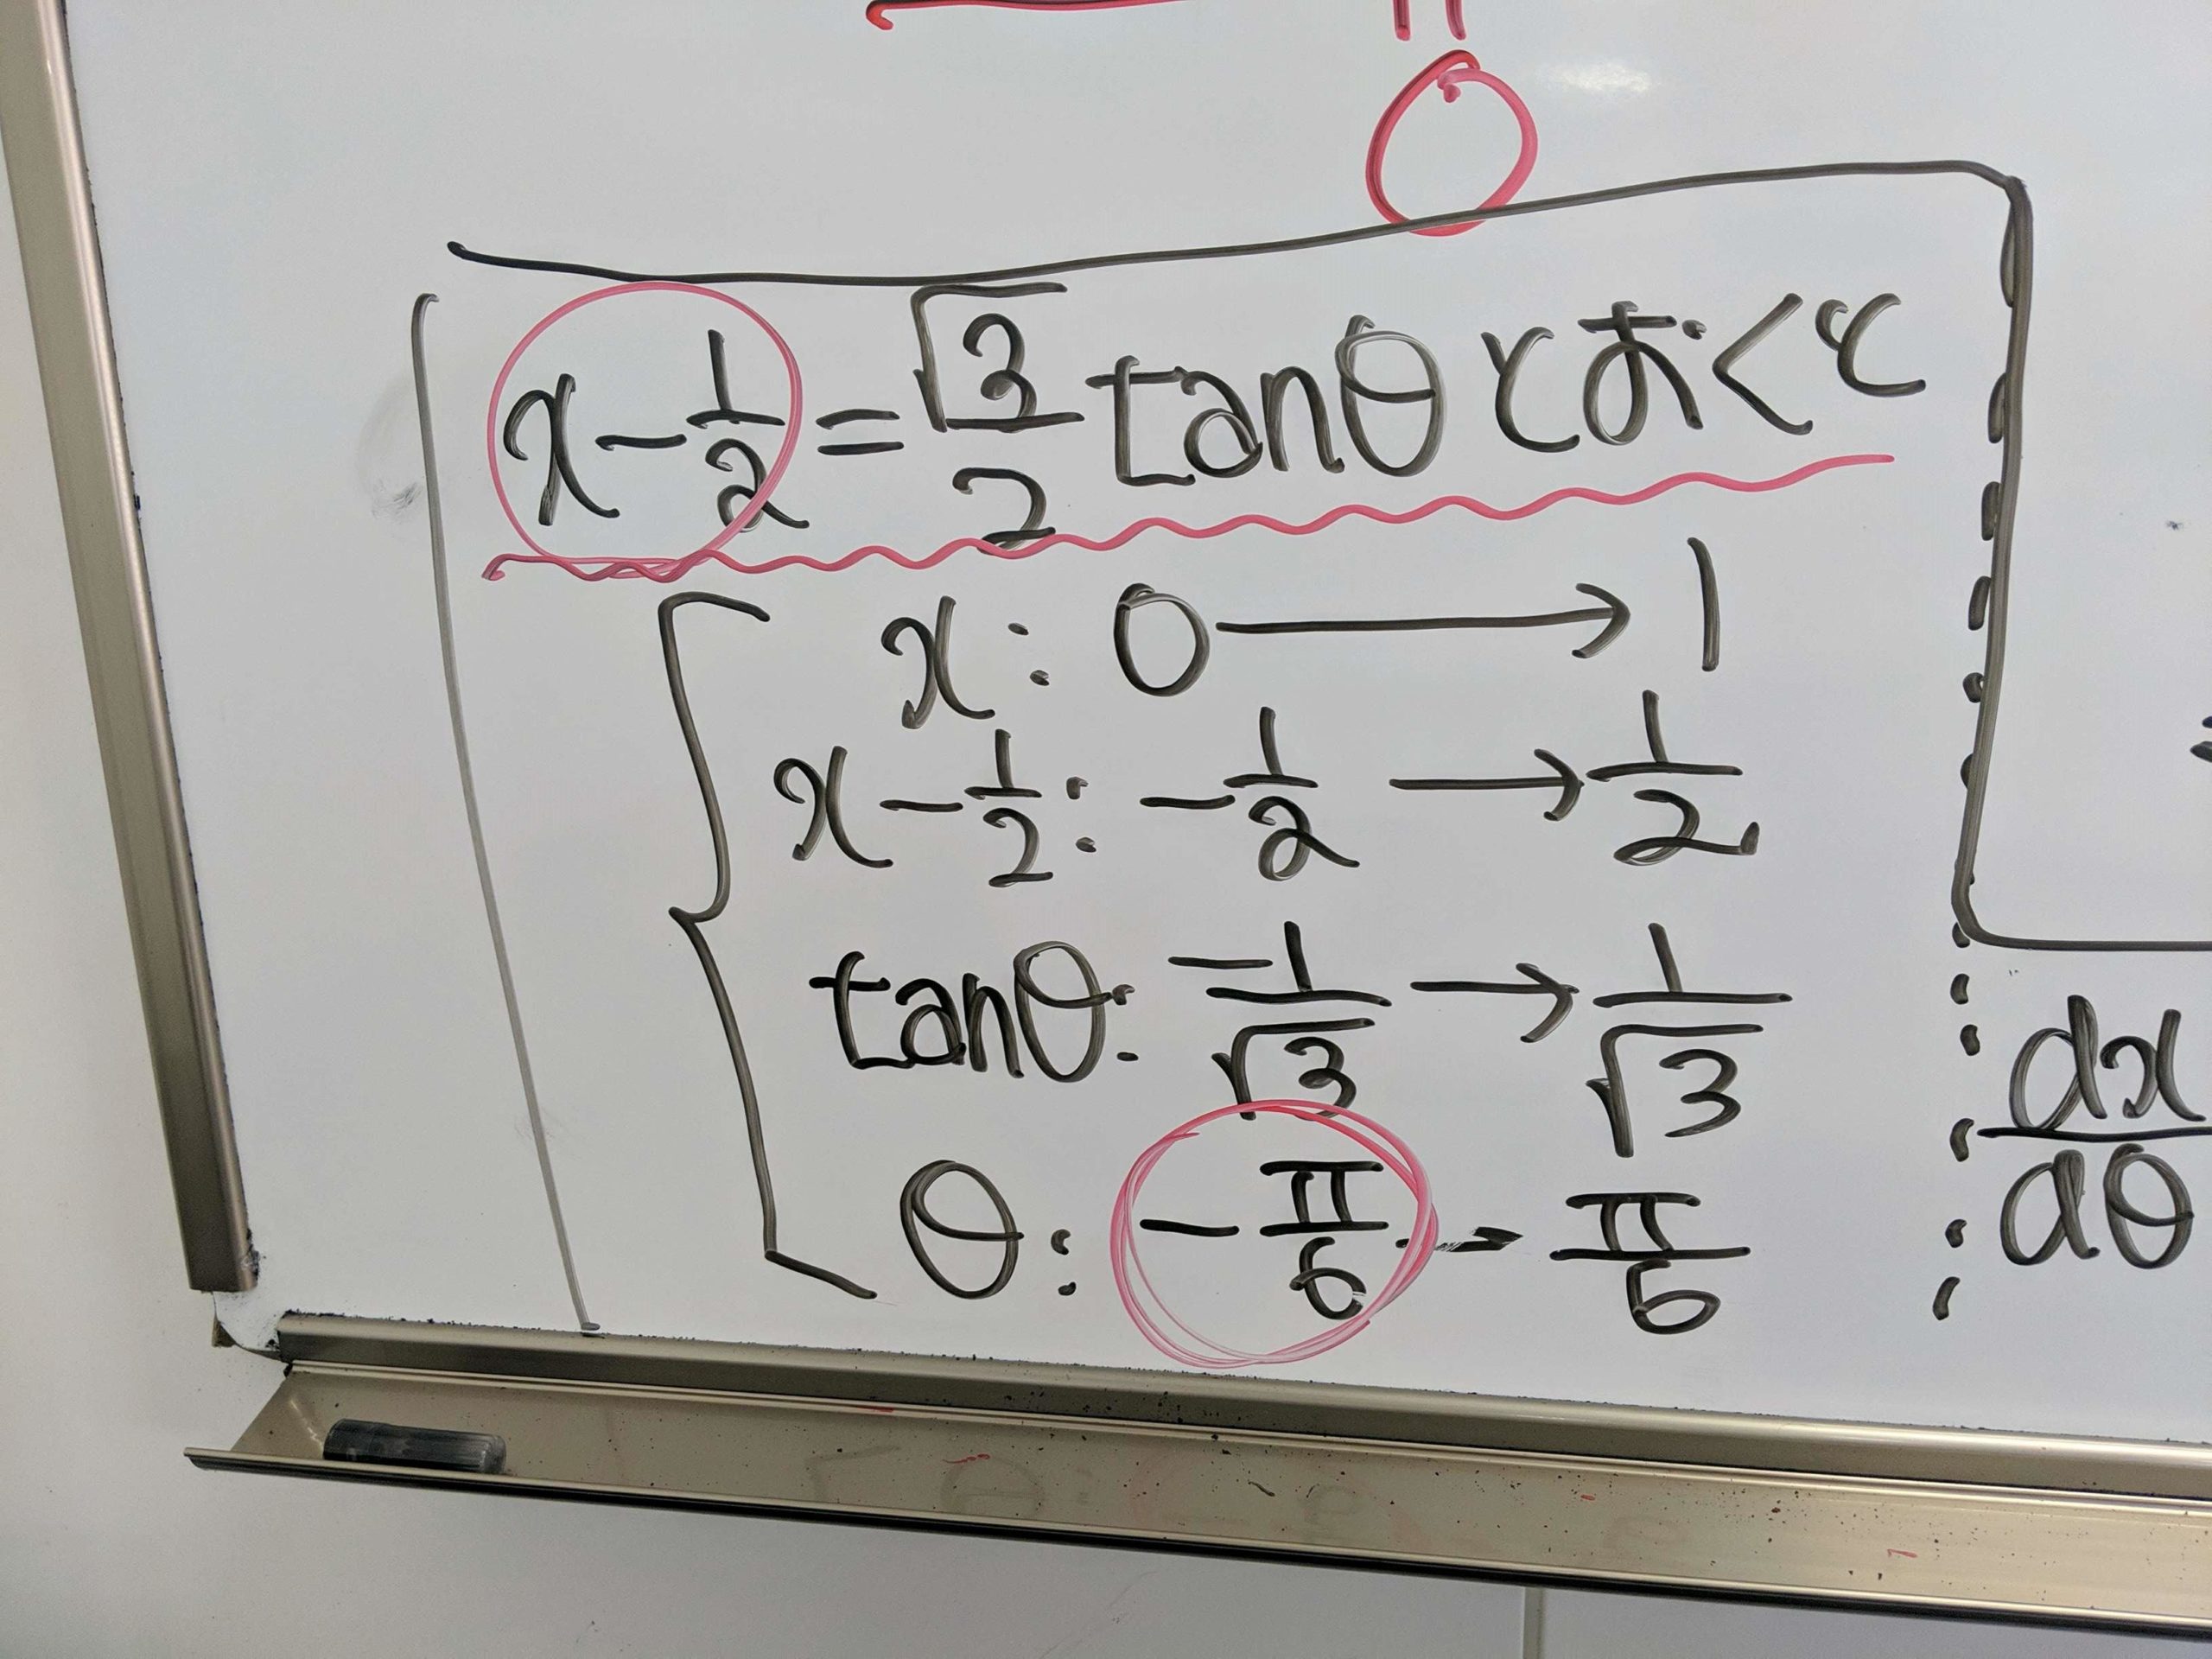 x - 1/2 = √3/2 tanθ とおくと
x : 0 → 1
x - 1/2 : -1/2 → 1/2
tanθ : -1/√3 → 1/√3
θ : -π/6 → π/6
dx/dθ